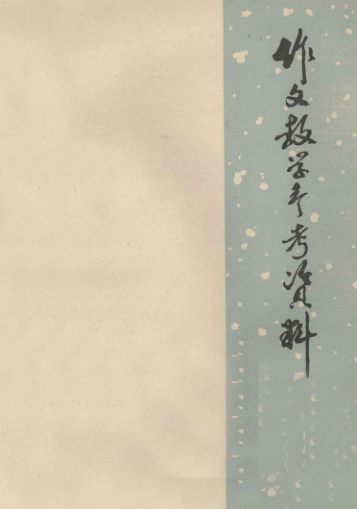 作文教学参考资料